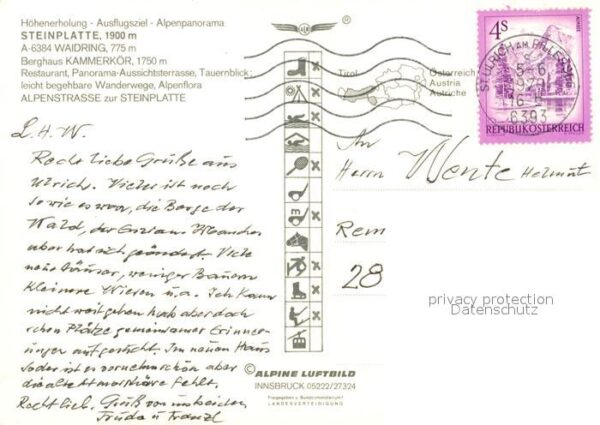 Höhenerholung - Ausflugsziel - Alpenpanorama
STEINPLATTE, 1900 m
A-6384 WAIDRING, 775 m
Berghaus KAMMERKÖR, 1750 m
Restaurant, Panorama-Aussichtsterrasse, Tauernblick;
leicht begehbare Wanderwege, Alpenflora
ALPENSTRASSE zur STEINPLATTE
®
Tirol
Österreich
Austria
Autriche
4S
ALMSEE
REPUBLIK ÖSTERREICH
ST. ULRICH AM PILLERSEE
5-6
6393
L. H. W.
Recht liebe Grüße aus
Ulrich. Vieles ist noch
so wie es war, die Berge der
Wald, der Enzian. Manches
aber hat sich geändert. Viele
neue Häuser, weniger Bauern
kleinere Wiesen u.a. Ich kann
nicht weit gehen hab aber doch
schon Plätze gemeinsamer Erinner-
ungen aufgesucht. Im neuen Haus
ist es schön aber
die alte fehlt.
Recht lieb. Gruß von uns beiden
Frieda u Franzl
An
Herrn Wente Helmut
Rem
28
m
privacy protection
Datenschutz
© ALPINE LUFTBILD
INNSBRUCK 05222/27324
Freigegeben v. Bundesministerium f.
LANDESVERTEIDIGUNG